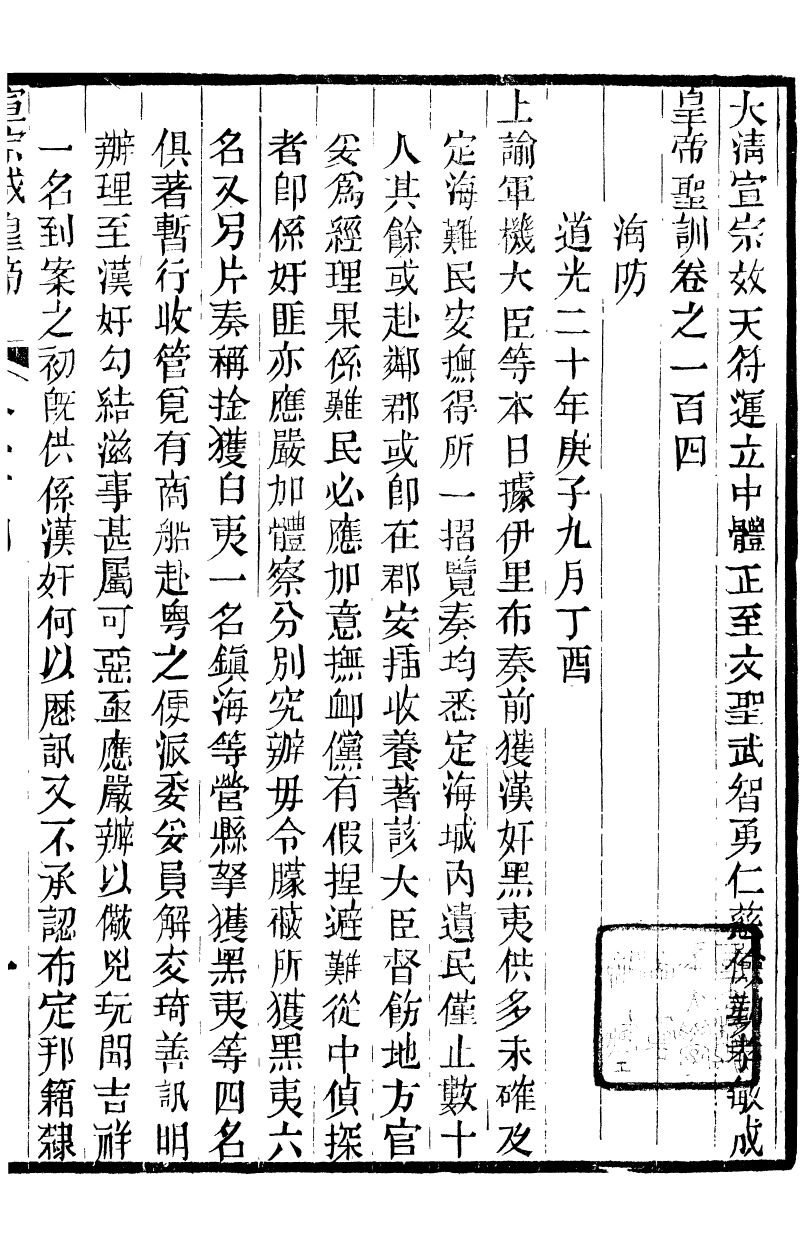 大清宣宗效天符運立中體正至文聖武智勇仁慈儉勤孝敏成
皇帝聖訓卷之一百四
海防
道光二十年庚子九月丁酉
上諭軍機大臣等本日據伊里布奏前獲漢奸黑夷供多未確及
定海難民安撫得所一摺覽奏均悉定海城內遺民僅止數十
人其餘或赴鄰郡或卽在郡安插收養著該大臣督飭地方官
妥爲經理果係難民必應加意撫卹儻有假捏避難從中偵探
者卽係奸匪亦應嚴加體察分別究辦毋令朦蔽所獲黑夷六
名又另片奏稱捦獲白夷一名鎮海等營縣拏獲黑夷等四名
俱著暫行收管覓有商船赴粵之便派委妥員解交琦善訊明
辦理至漢奸勾結滋事甚屬可惡亟應嚴辦以儆兇玩聞吉祥
一名到案之初旣供係漢奸何以歷訊又不承認布定邦籍隸
宣宗成皇帝